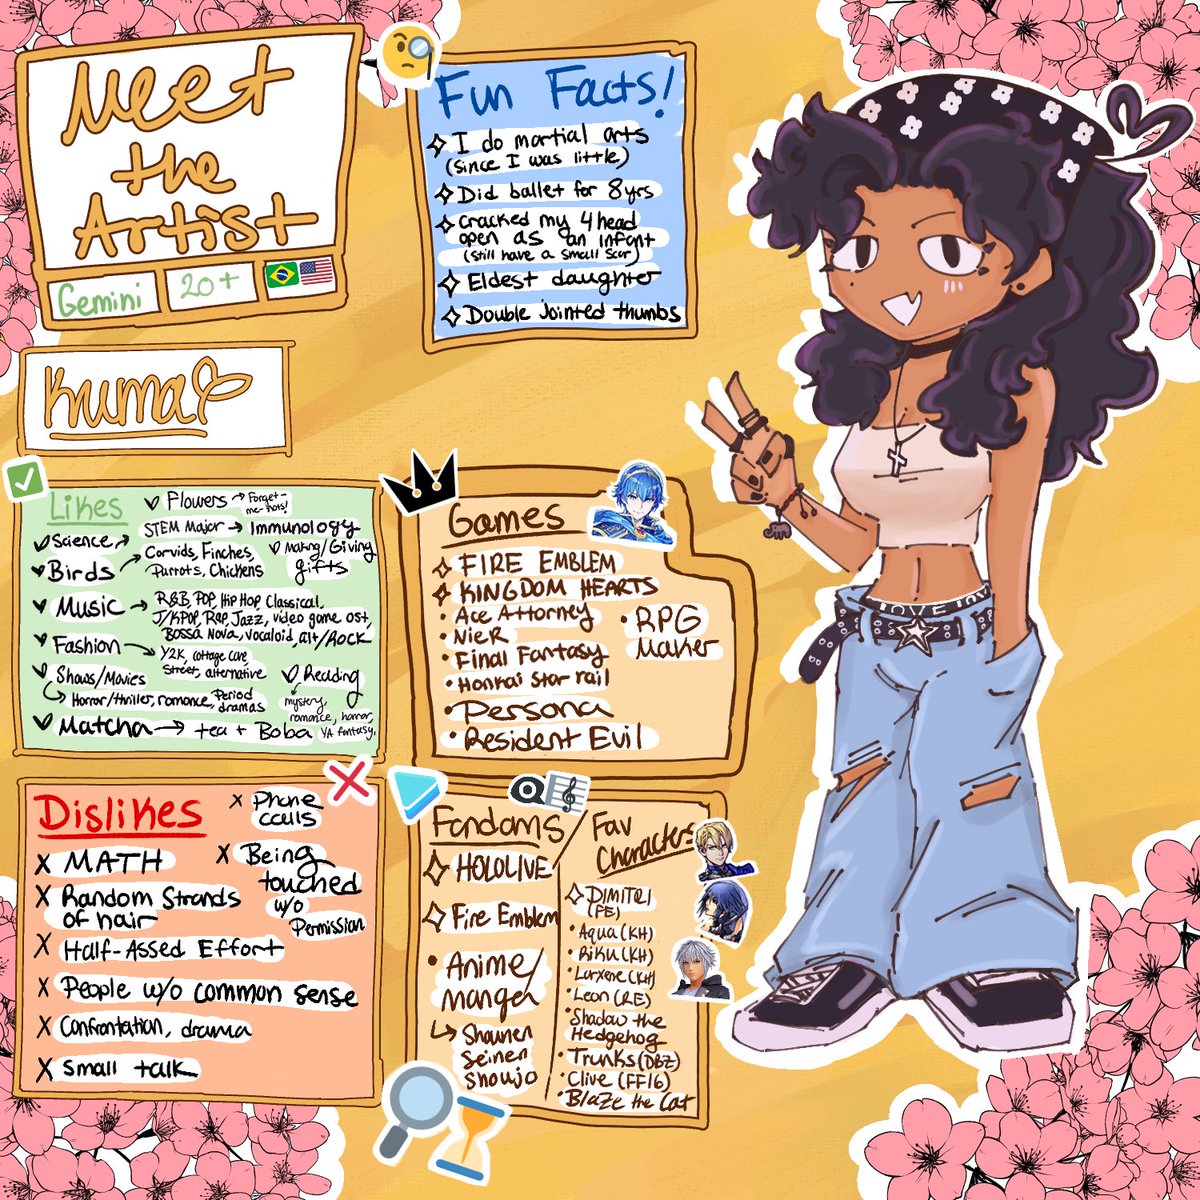 Meet
the
Artist
Gemini
20+
Kuma
Fun Facts!
I do martial arts
(since I was little)
Did ballet for 8yrs
Cracked my 4head
open as an infant
(still have a small scar)
Eldest daughter
Double jointed thumbs
Likes
Flowers → Forget-
me-nots!
Science → STEM Major → Immunology
Birds → Corvids, Finches,
Parrots, Chickens
Making/Giving
gifts
Music → R&B, POP, HIP HOP, Classical,
J/KPOP, Rap, Jazz, video game ost,
Bossa Nova, vocaloid, alt/ROCK
Fashion → Y2K, cottage core,
Street, alternative
Shows/Movies
↳ Horror/thriller, romance, Period
dramas
Reading
mystery,
romance, horror,
YA fantasy,
Matcha → tea + Boba
Games
FIRE EMBLEM
KINGDOM HEARTS
• Ace Attorney
• NieR
• Final Fantasy
• Honkai Star rail
• Persona
• Resident Evil
• RPG
Maker
Dislikes
X Phone
calls
X MATH
X Being
touched
w/o
Permission
X Random Strands
of hair
X Half-Assed Effort
X People w/o common sense
X Confrontation, drama
X Small talk
Fandoms
HOLOLIVE
Fire Emblem
• Anime/
manga
↳ Shounen
Seinen
Shoujo
Fav
Characters
DIMITRI
(FE)
• Aqua (KH)
• Riku (KH)
• Larxene (KH)
• Leon (RE)
• Shadow the
Hedgehog
• Trunks (DBZ)
• Clive (FF16)
• Blaze the Cat
LOVE LOV